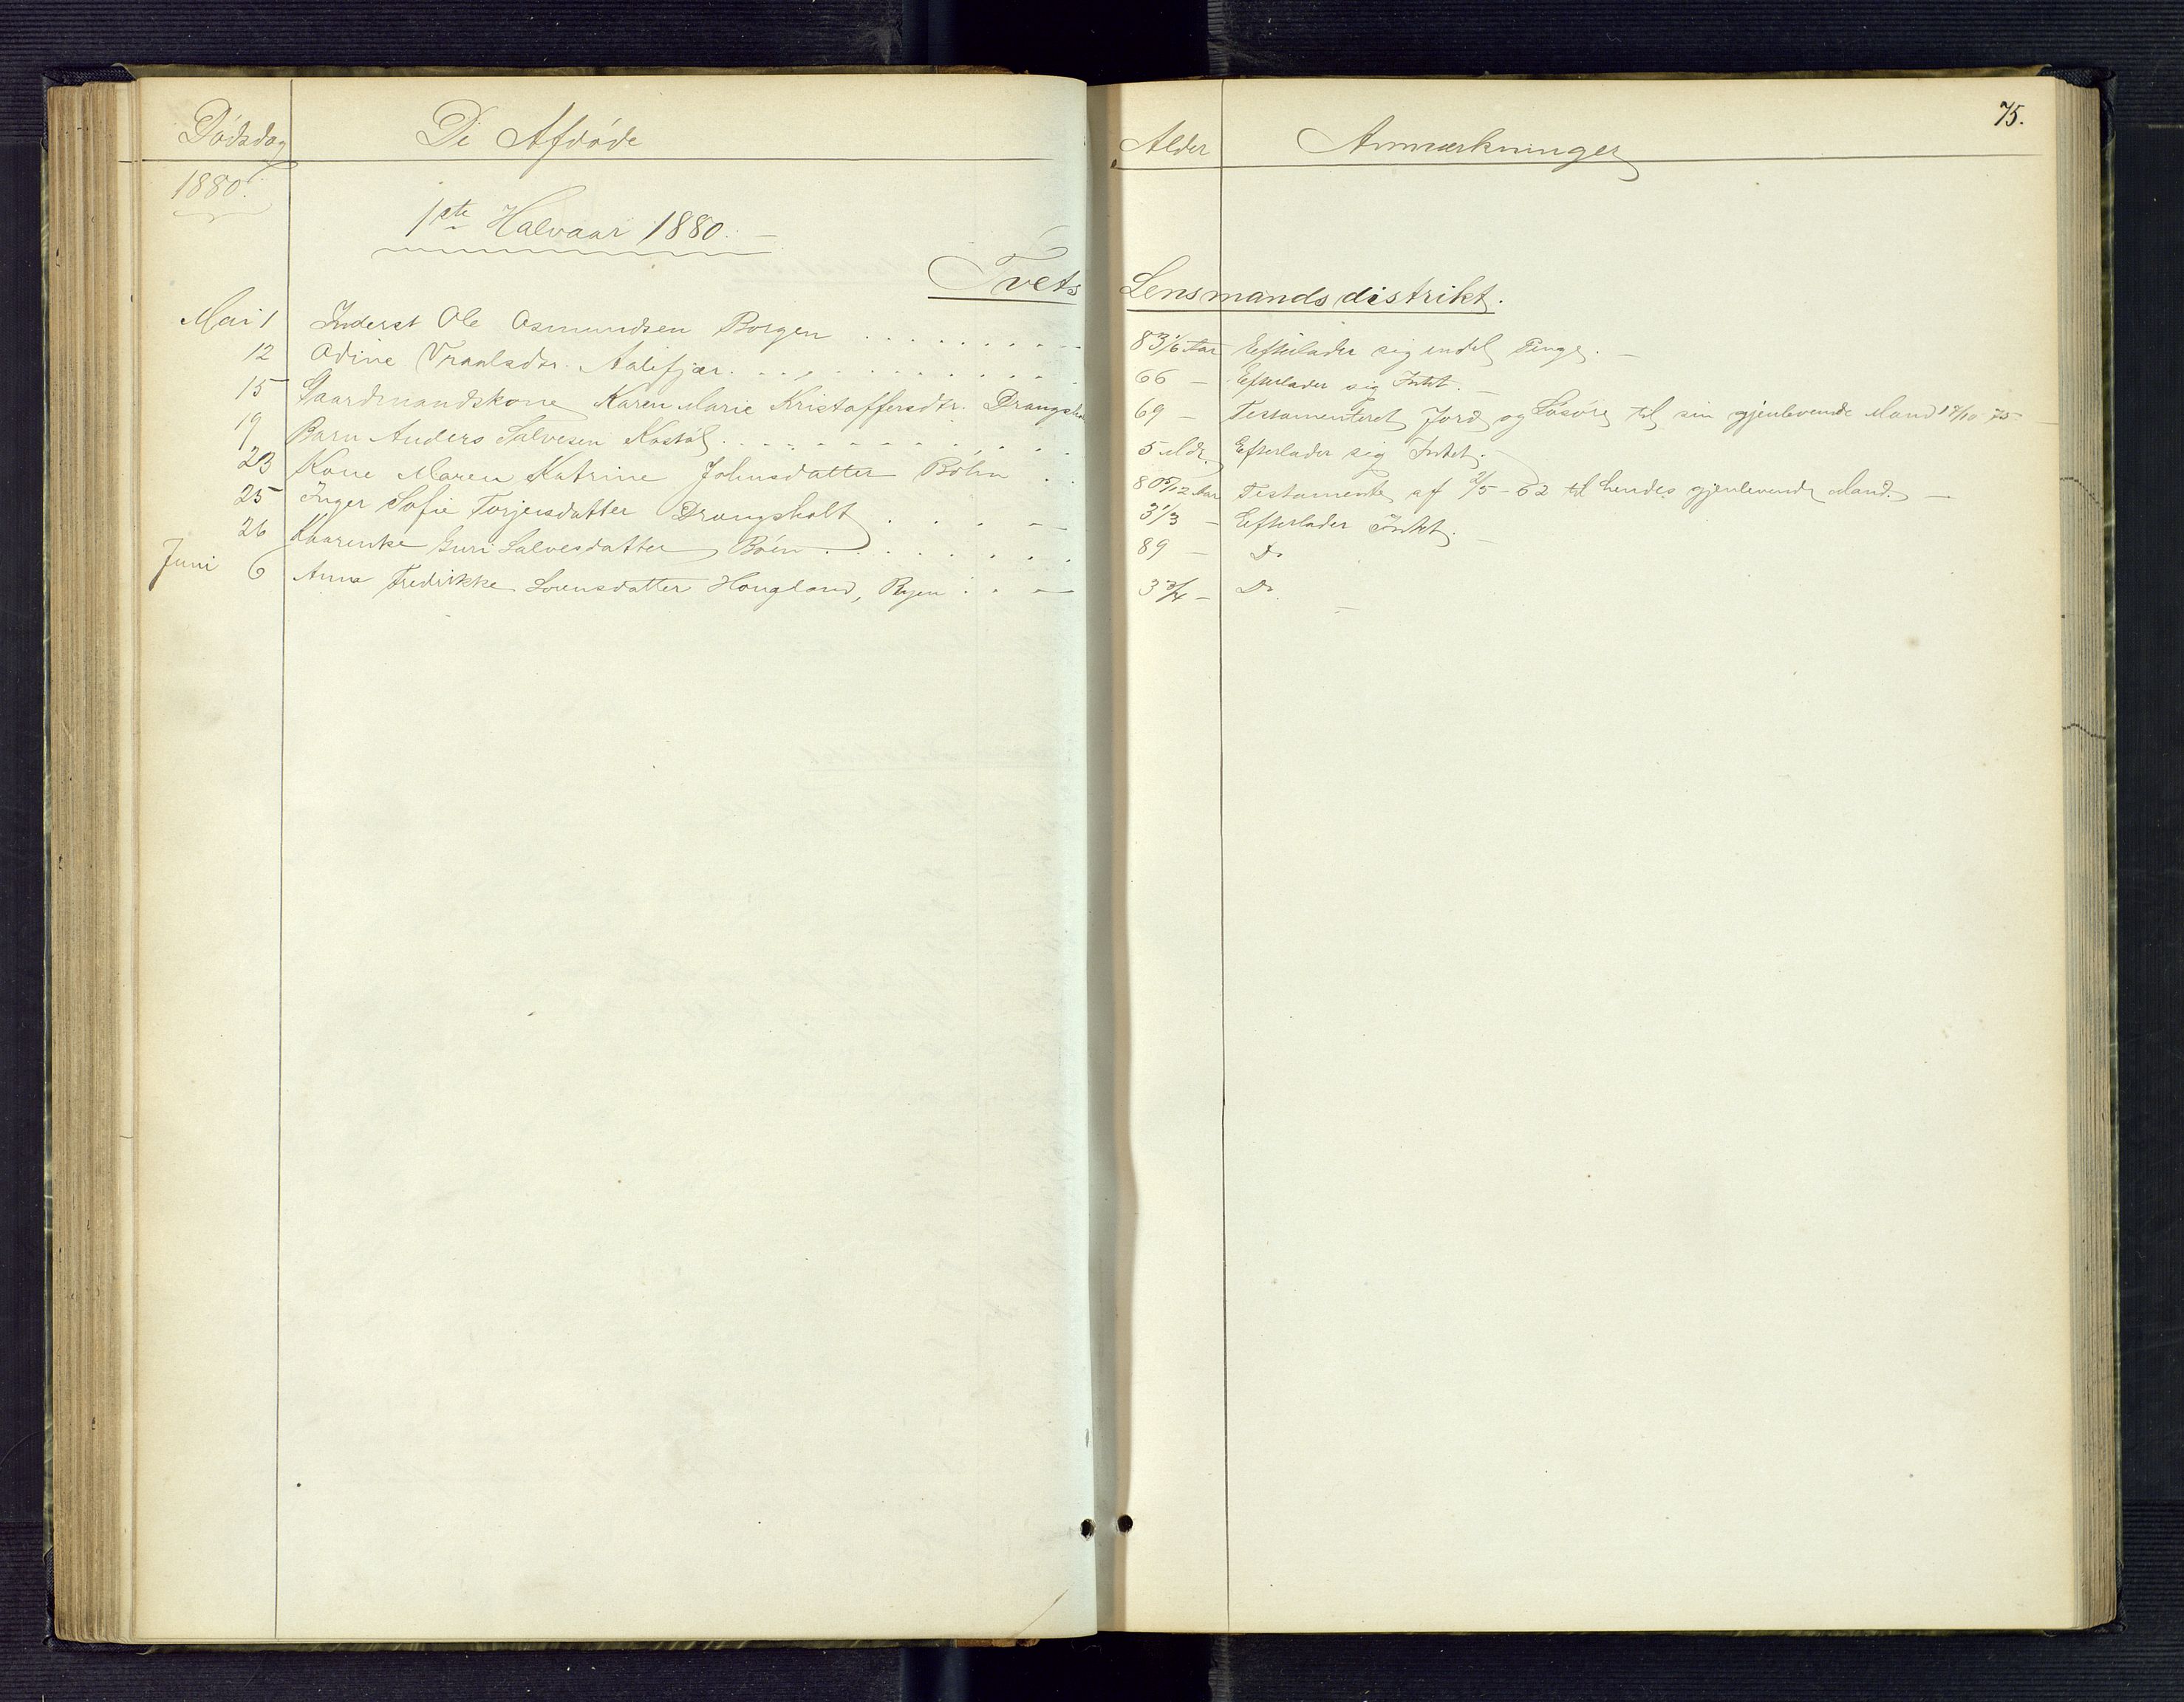 75.
Dödsdag De Afdöde Alder Anmærkninger
1880.
1ste Halvaar 1880. –
Tvets Lensmandsdistrikt.
Mai 1 Inderst Ole Osmundsen Borgen 83 1/6 Aar Efterlader sig endel Penge. –
12 Odine Vraalsdtr. Aalefjær 66 – Efterlader sig Intet. –
15 Gaardmandskone Karen Marie Kristoffersdtr. Drangsholt 69 – Testamenteret Jord og Løsöre til sin gjenlevende Mand 75 –
19 Barn Anders Salvesen Kostöl 5 Mdr. Efterlader sig Intet. –
23 Kone Maren Katrine Johnsdatter Böhn 80 Aar Testamente af 2/5 - 62 til hendes gjenlevende Mand. –
25 Inger Sofie Torjersdatter Drangsholt 3 1/3 – Efterlader Intet. –
26 Guri Salvesdatter Böen 89 – Do
Juni 6 Anna Fredrikke Sorensdatter Hougland, Ryen 3 3/4 – Do. –